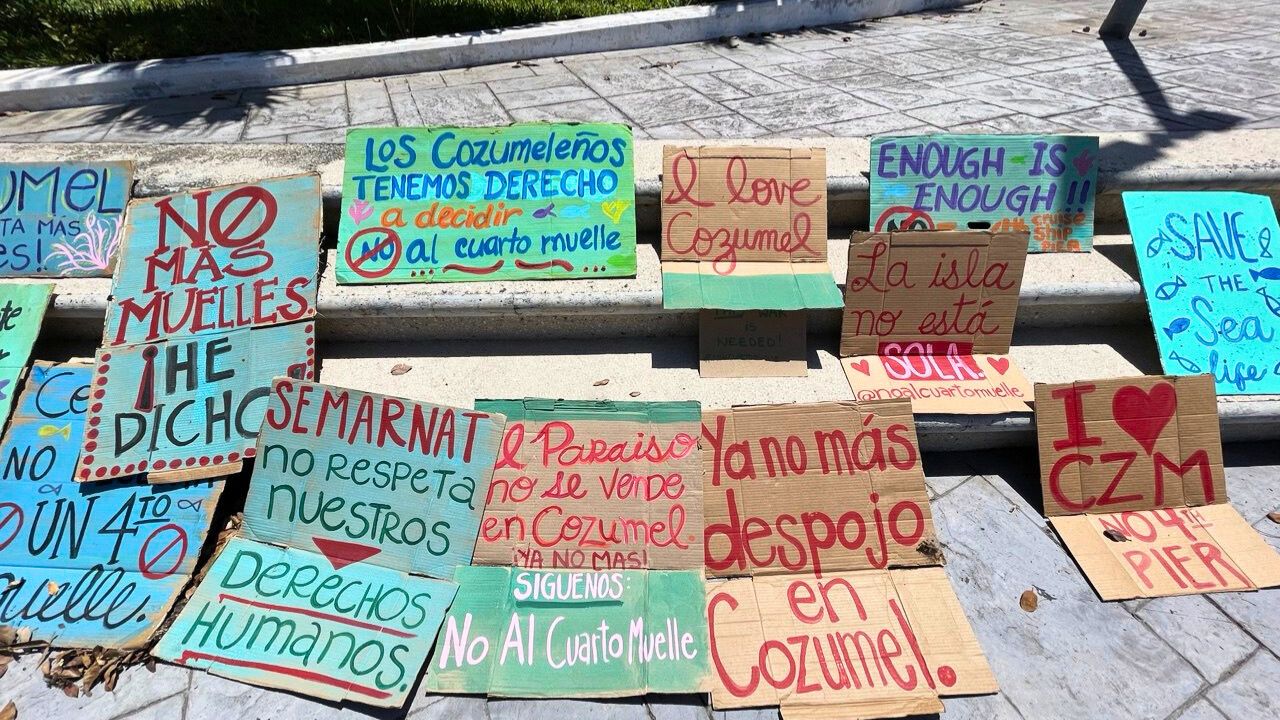 UMEL
TA MÁS
es!
NO
MÁS
MUELLES.
¡HE
DICHO
LOS COZUMELEÑOS
TENEMOS DERECHO
a decidir
NO al cuarto muelle
I love
Cozumel
IS
NEEDED!
ENOUGH IS
ENOUGH!!
NO
La isla
no está
SOLA!
@noalcuartomuelle
SAVE
THE
Sea
life
te
Ce
NO
UN 4TO
uelle.
SEMARNAT
no RESPETA
nuestros
DERECHOS
HUMANOS.
el Paraiso
no se vende
en Cozumel.
¡YA NO MAS!
SIGUENOS:
No Al Cuarto Muelle
Ya no más
despojo
en
Cozumel.
I ❤ 
CZM
NO 4TH
PIER